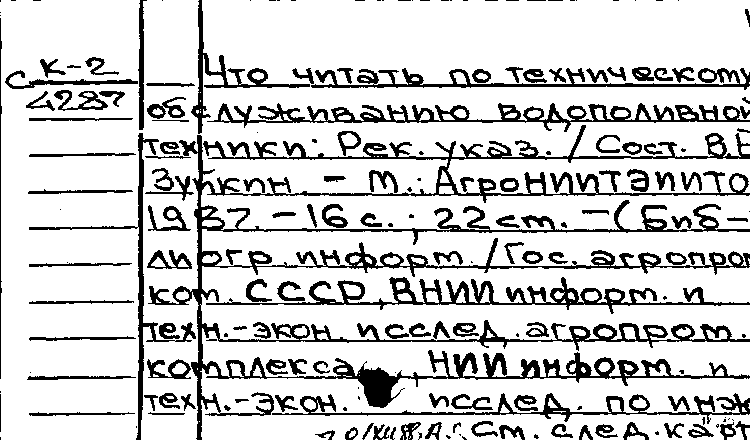 К-2
С 4287
Что читать по техническому
обслуживанию водополивной
техники: Рек. указ. / Сост. В.Е
Зуйкин. - М.: АгроНИИТЭИИТО
1987. - 16 с.; 22 cm. - (Биб-
лиогр. информ. / Гос. агропром
ком. СССР, ВНИИ информ. и
техн.-экон. исслед. агропром.
комплекса, НИИ информ. и
техн.-экон. исслед. по инж
См. след. карт